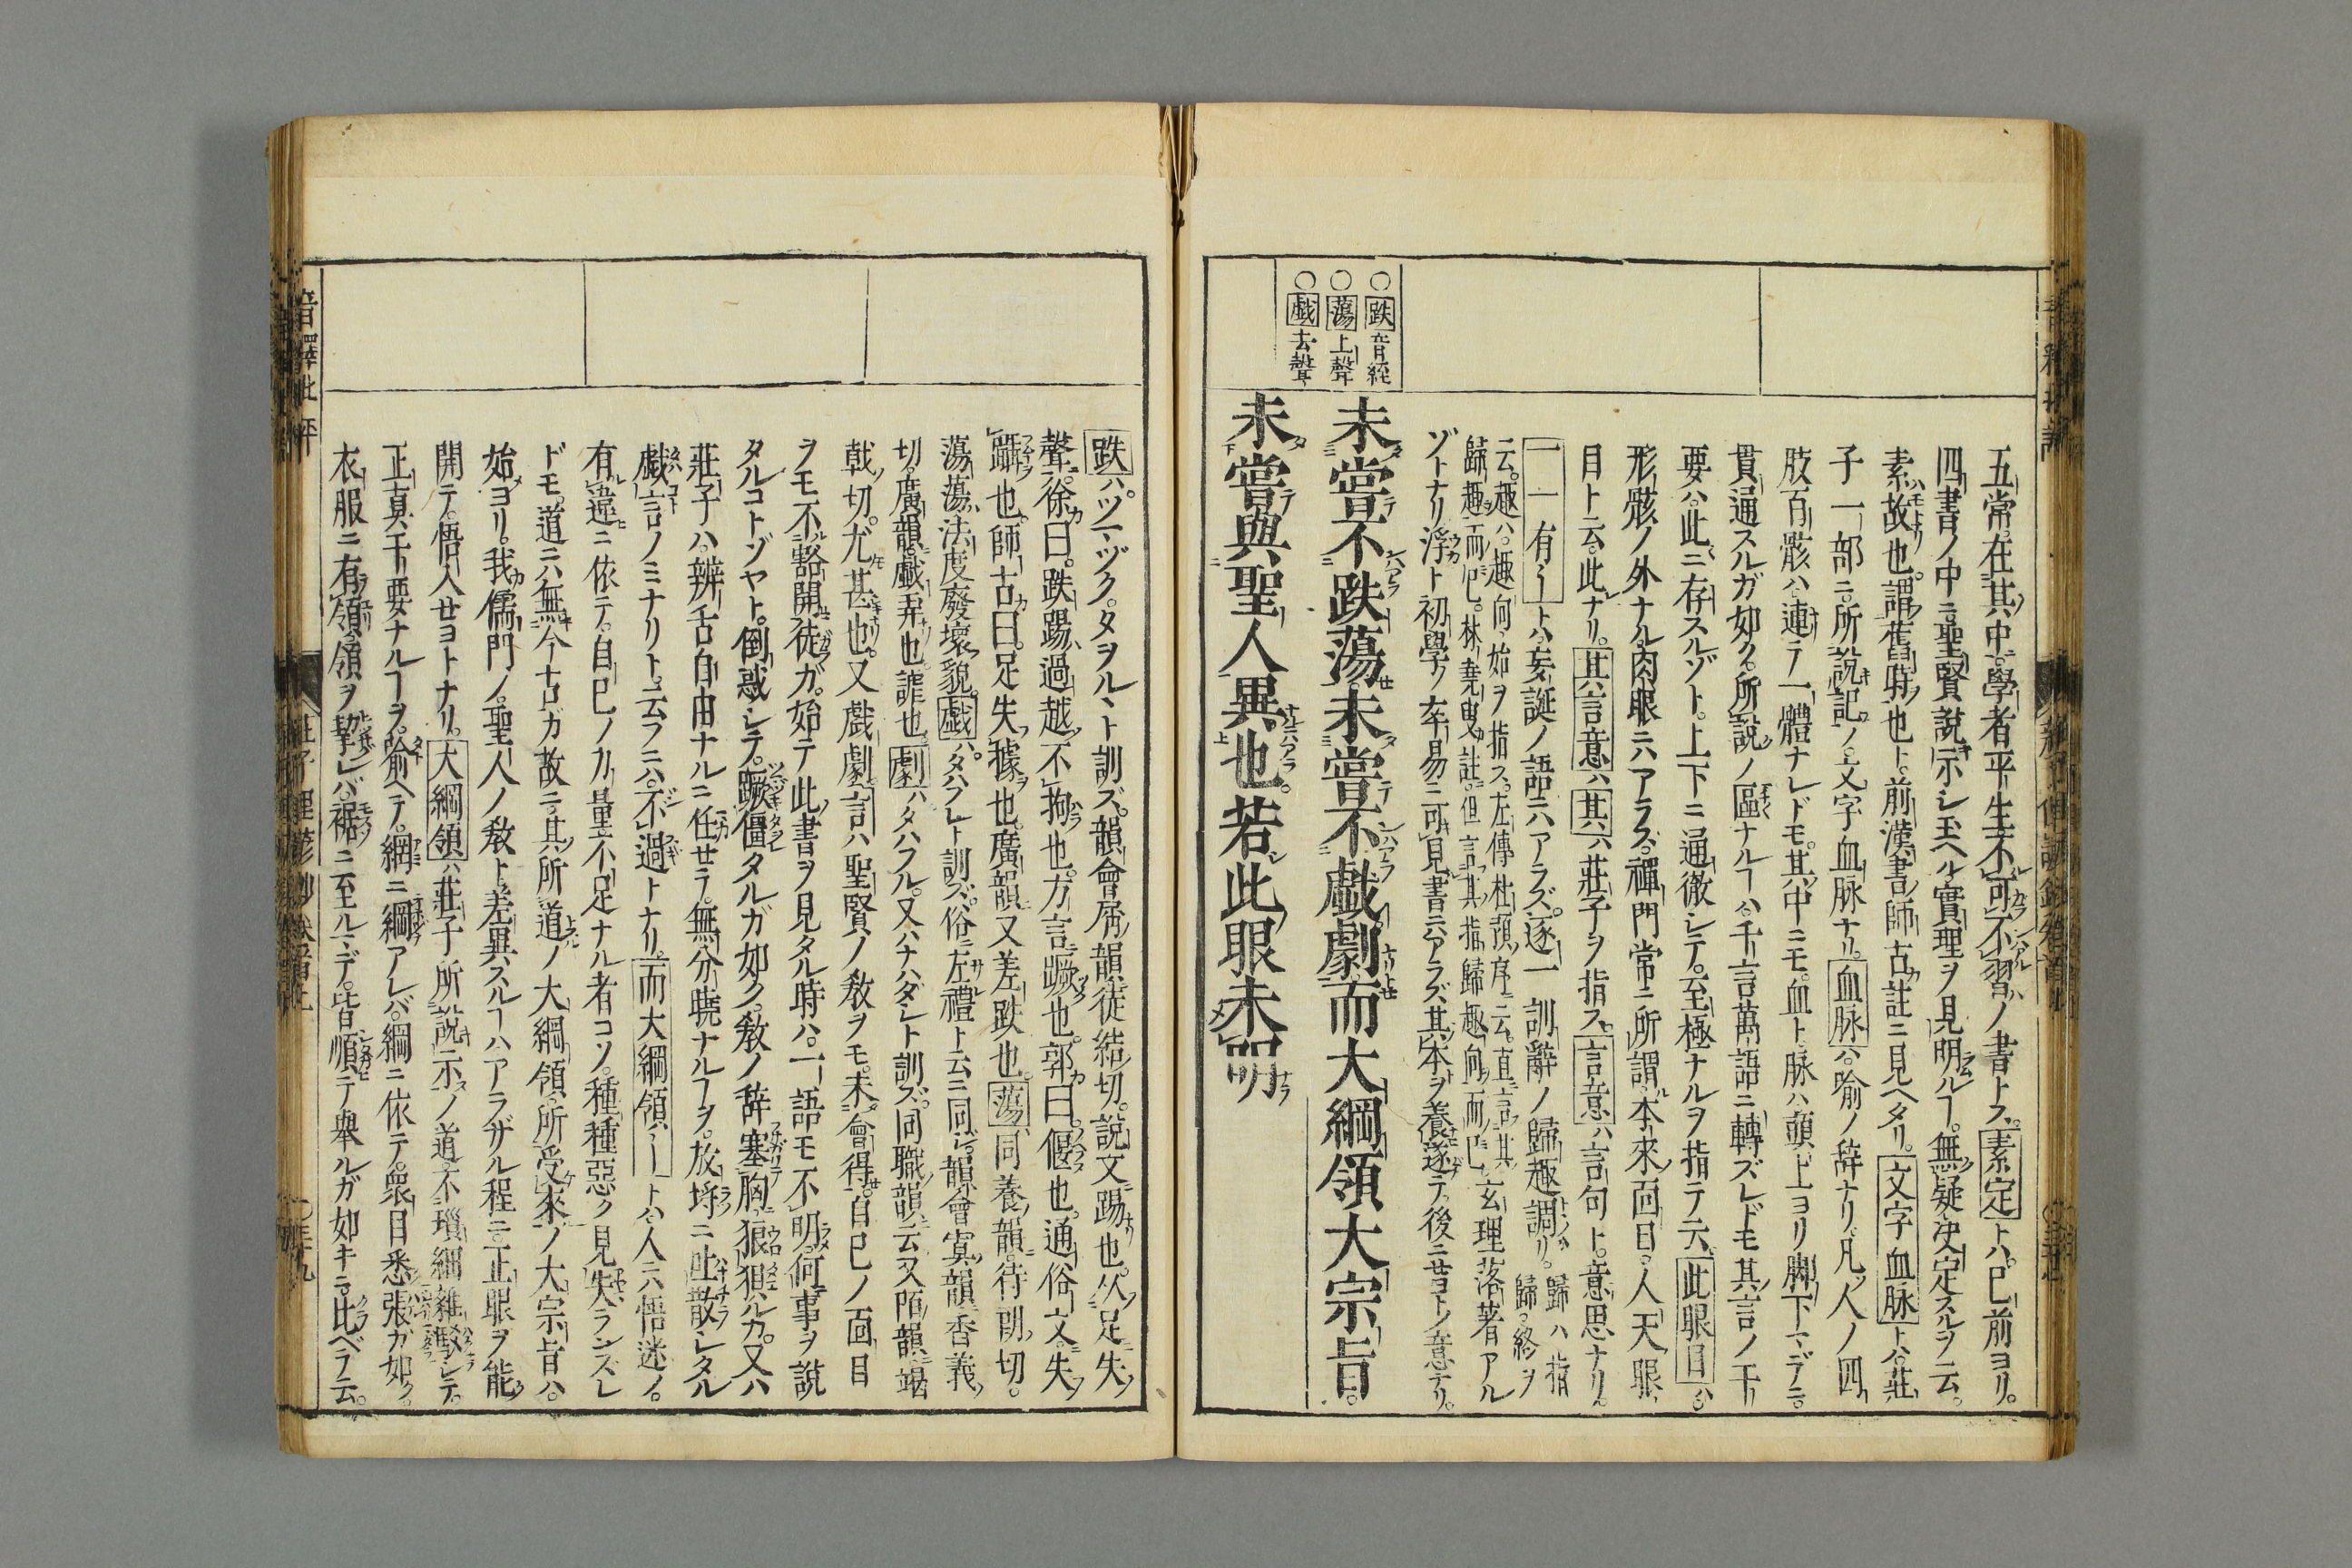 五常在其中學者平生不可不習ノ書トス。素定トハ。已前ヨリ。
四書ノ中ニ聖賢說示シ玉ヘル實理ヲ見明ル𪜈。無疑決定スルヲ云。
素故也。謂舊時也ト。前漢書師古註ニ見ヘタリ。文字血脉トハ。莊
子一部ニ。所說記ノ。文字血脉ナリ。血脉ハ。喩ノ辞ナリ。凡人ノ四
肢百骸ハ。連テ一體ナレドモ。其中ニモ。血ト脉ハ。頭上ヨリ脚下マデニ。
貫通スルガ如ク。所說ノ區ナル𪜈ハ。千言萬語ニ轉ズレドモ其言ノ干
要ハ。此ニ存スルゾト。上下ニ通徹シテ。至極ナルヲ指テ云。此眼目ハ。
形骸ノ外ナル。肉眼ニハアラズ。禪門常ニ所謂。本來ノ面目。人天眼
目ト云。此ナリ。其言意ハ其ハ莊子ヲ指ス。言意ハ言句ト。意思ナリ。
一一有トハ。妄誕ノ語ニハアラズ。逐一訓辭ノ歸趣調リ。歸ハ指歸。終ヲ
云。趣ハ。趣向。始ヲ指ス。左傳杜預序ニ云。直言其
歸趣而已。林堯叟註。但言其指歸趣向而已玄理落著アル
ゾトナリ浮ト初學ノ卒易ニ可見書ニアラズ。其本ヲ養遂テ。後ニセヨトノ意ナリ。
○跌音絰
○蕩上聲
○戲去聲
未嘗不跌蕩未嘗不戲劇而大綱領大宗旨。
未嘗與聖人異也。若此眼未明
跌ハ。ツマヅク。タヲルヽト訓ズ。韻會屑韻徒結切。說文踢也。从足失
聲。徐曰。跌踢。過越不拘也。方言蹶也。郭曰。偃也。通俗文。失
躡也。師古曰。足失據也。廣韻又差跌也。蕩同養韻。待朗切。
蕩蕩法度廢壞貌。戲ハ。タハフレト訓ズ。俗ニ左禮ト云ニ同ジ。韻會寘韻香義
切。廣韻戲弄也謔也。劇ハタハフル。又ハナハダシト訓ズ。同職韻云又陌韻竭
戟切。尤甚也。又戲劇言ハ聖賢ノ教ヲモ。未會得。自己ノ面目
ヲモ不豁開徒ガ。始テ此書ヲ見タル時ハ。一語モ不明。何事ヲ說
タルコトゾヤト。倒惑シテ。蹶僵タルガ如ク。教ノ辞塞胸。狼狽ルカ。又ハ
莊子ハ。辨舌自由ナルニ任セテ。無分曉ナル𪜈ヲ。放埒ニ吐散シタル
戲言ノミナリト。云ラニハ。不過トナリ。而大綱領トハ人ニ悟迷ノ。
有違ニ依テ。自已ノ力量不足ナル者コソ。種種惡ク見失ランズレ
ドモ。道ニハ無今古ガ故ニ。其所道ノ大綱領所受來ノ大宗旨ハ。
始ヨリ。我儒門ノ。聖人ノ教ト。差異スル𪜈ハアラザル程ニ。正眼ヲ能
開テ。悟入セヨトナリ。大綱領ハ莊子所說示ノ道。不瑣細雜駁シテ。
正真。干要ナル𪜈ヲ。喩ヘテ。網ニ綱アレバ。綱ニ依テ。衆目悉張ガ如ク。
衣服ニ有領領ヲ挈レバ。裾ニ至ルマデ。皆順テ舉ルガ如キニ比ベテ云。
音釋批評